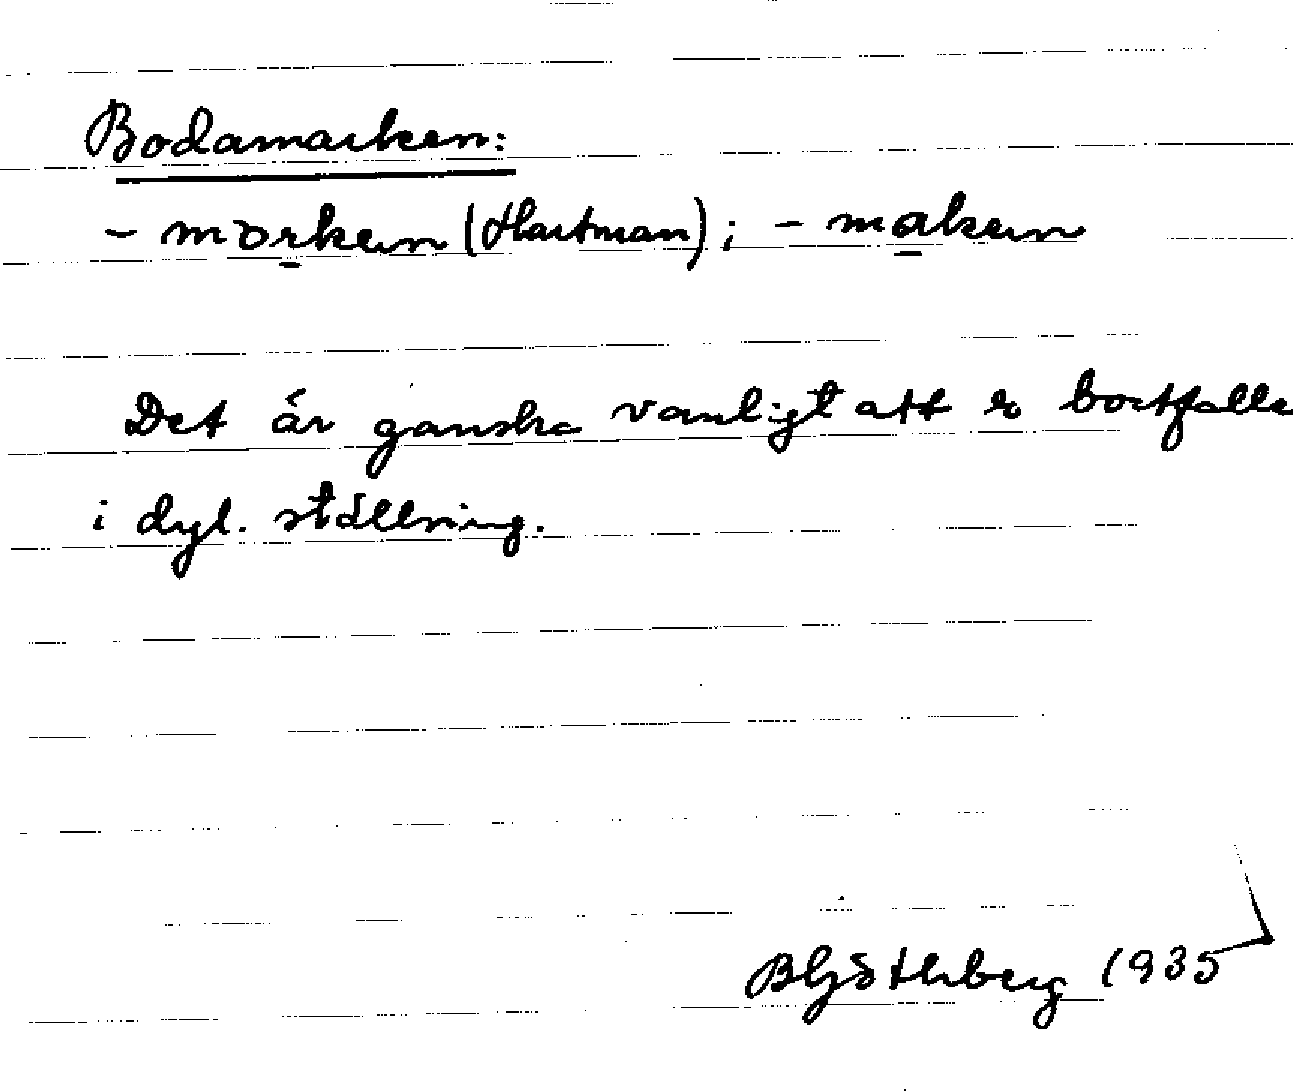 Bodamarken:
- morken (Hartman); - maken
Det är ganska vanligt att r bortfalle
i dyl. ställning.
1935